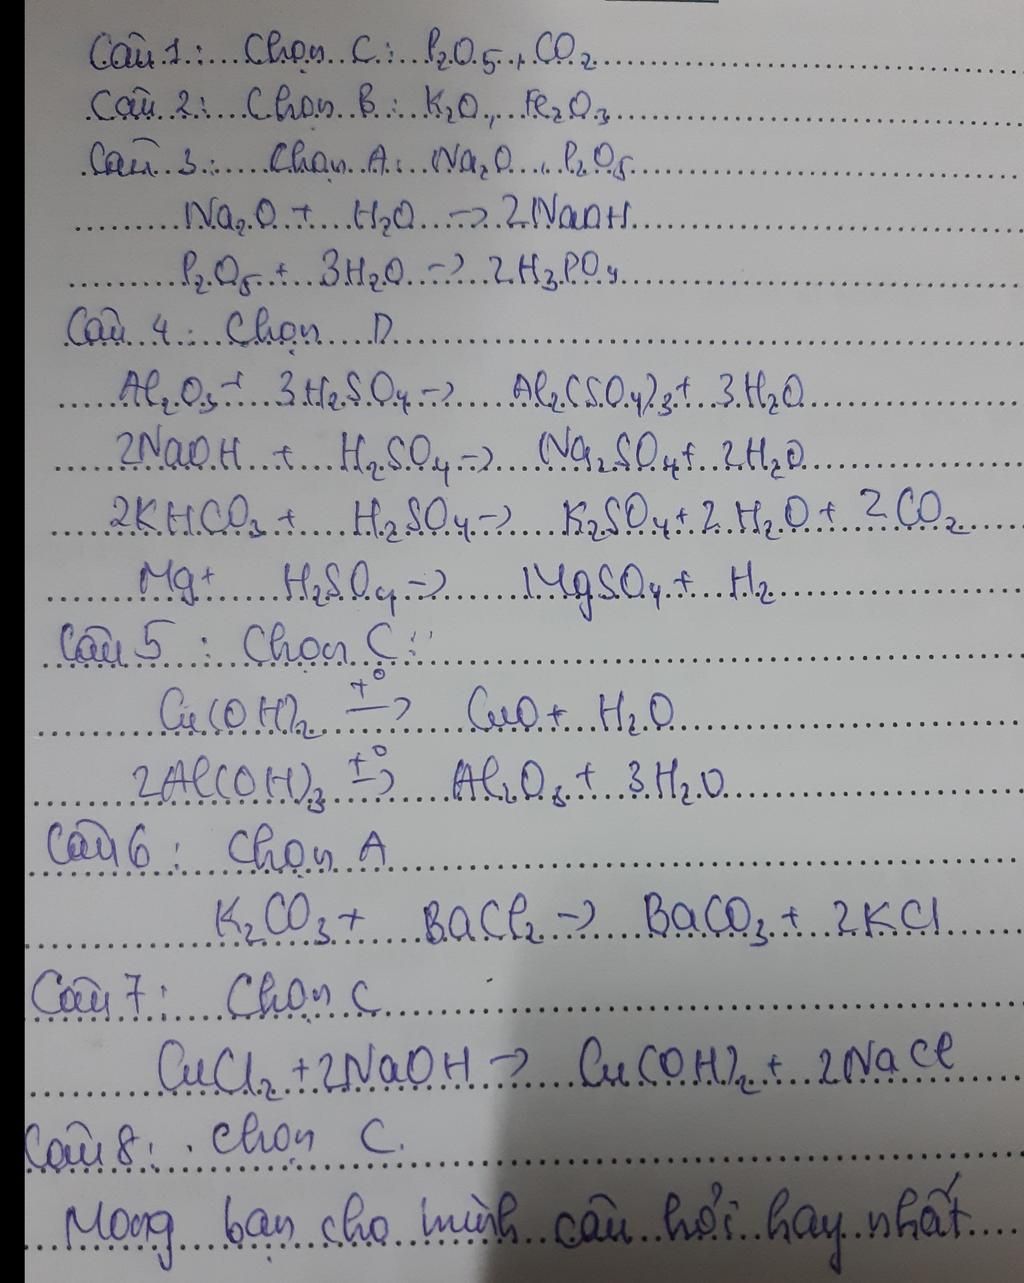 Câu 1: Chọn C: P₂O₅, CO₂
Câu 2: Chọn B: K₂O, Fe₂O₃
Câu 3: Chọn A: Na₂O, P₂O₅
Na₂O + H₂O -> 2NaOH
P₂O₅ + 3H₂O -> 2H₃PO₄
Câu 4: Chọn D
Al₂O₃ + 3H₂SO₄ -> Al₂(SO₄)₃ + 3H₂O
2NaOH + H₂SO₄ -> Na₂SO₄ + 2H₂O
2KHCO₃ + H₂SO₄ -> K₂SO₄ + 2H₂O + 2CO₂
Mg + H₂SO₄ -> MgSO₄ + H₂
Câu 5: Chọn C:
Cu(OH)₂ -t°-> CuO + H₂O
2Al(OH)₃ -t°-> Al₂O₃ + 3H₂O
Câu 6: Chọn A
K₂CO₃ + BaCl₂ -> BaCO₃ + 2KCl
Câu 7: Chọn C
CuCl₂ + 2NaOH -> Cu(OH)₂ + 2NaCl
Câu 8: Chọn C.
Mong bạn cho mình câu hỏi hay nhất